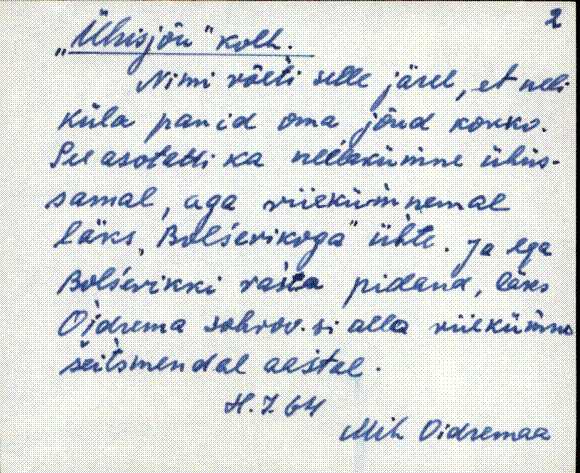 2
„Ühisjõu" kolh.
Nimi võeti selle järel, et neli
küla panid oma jõud kokko.
See asotatti ka nellakümne ühes-
samal, aga viiekümnemal
läks „Bolševikoga" ühte. Ja ega
Bolševikki vasta pidand, läks
Oidrema sohvov.si alla viiekümne
seitsmendal aastal.
H.J. 64
Mih Oidremaa